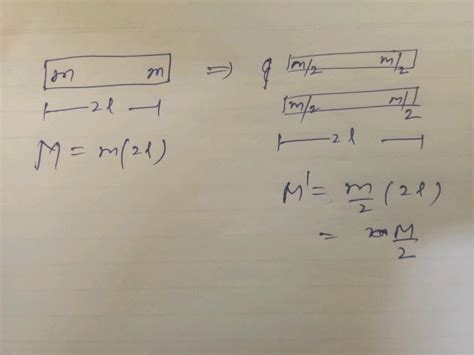 m m ⇒ q m/2 m/2
m/2 m/2
2l
2l
M = m(2l)
M' = m/2 (2l)
= M/2